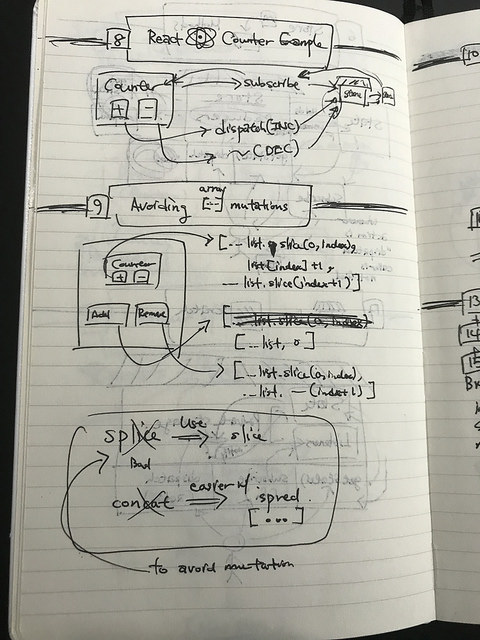 8 React Counter Example
Counter
+ -
subscribe
store
dispatch(INC)
~ (DEC)
9 Avoiding array [--] mutations
Counter
+ -
Add Remove
[... list.slice(0, index),
list[index]+1,
... list.slice(index+1)]
[... list.slice(0, index)
[... list, 0]
[... list.slice(0, index),
... list. — (index+1)]
splice Use slice
Bad
concat easier w/ spred.
[...]
to avoid mutation
10
13
14
15